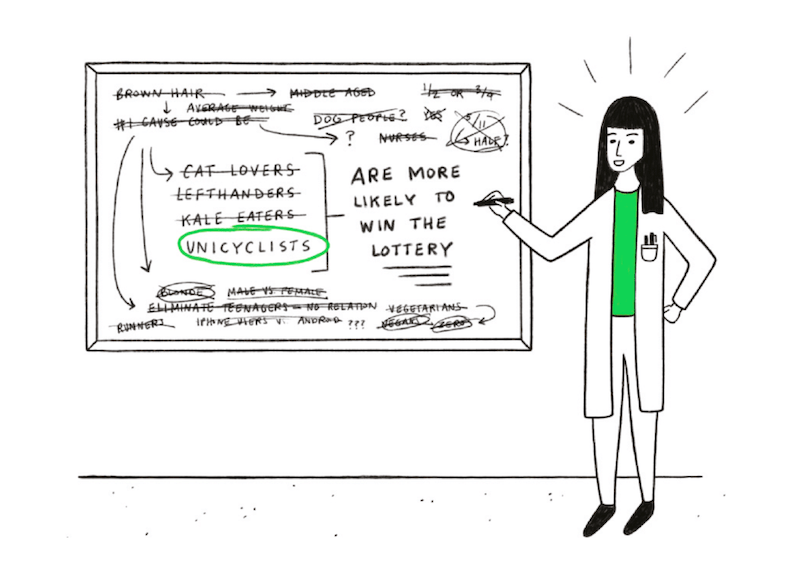 BROWN HAIR → MIDDLE AGED 1/2 OR 3/4
↓ AVERAGE WEIGHT
#1 CAUSE COULD BE
DOG PEOPLE? YES 5/11
? NURSES → HALF?
CAT LOVERS
LEFTHANDERS
KALE EATERS
UNICYCLISTS
ARE MORE
LIKELY TO
WIN THE
LOTTERY
BLONDE MALE VS FEMALE
ELIMINATE TEENAGERS — NO RELATION VEGETARIANS
RUNNERS IPHONE USERS V. ANDROID ??? VEGANS ZERO